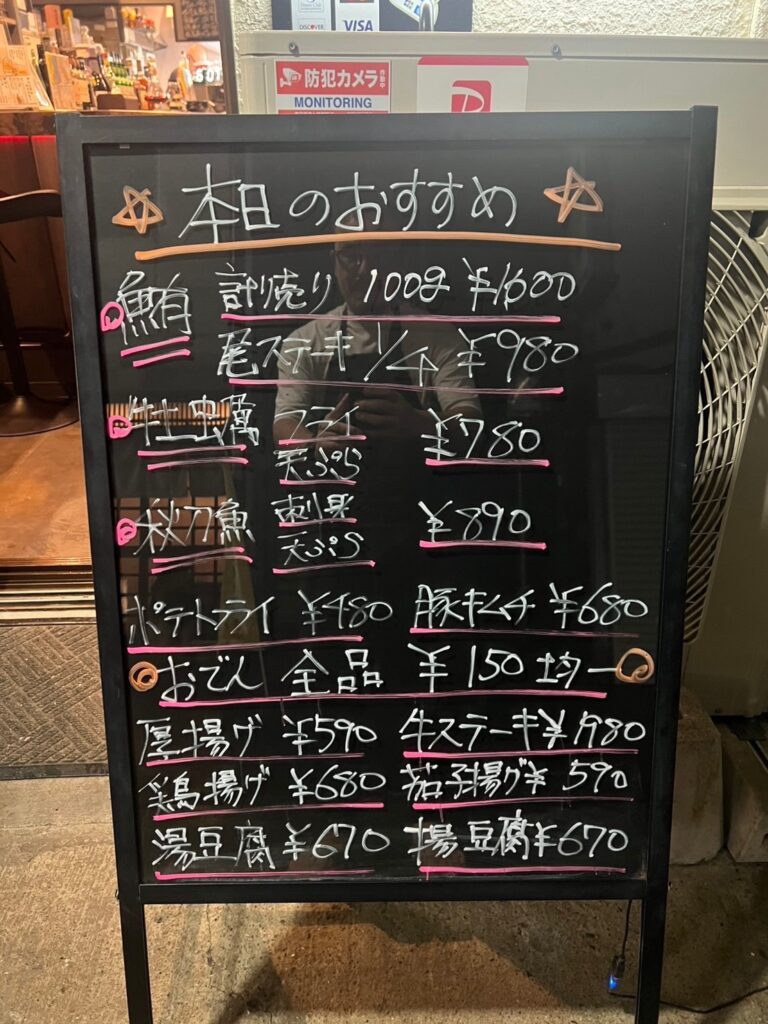 DISCOVER VISA
防犯カメラ 作動中
MONITORING
本日のおすすめ
鮪 計り売り 100g ¥1600
尾ステーキ 1/4 ¥980
牡蠣 フライ 天ぷら ¥780
秋刀魚 刺身 天ぷら ¥890
ポテトフライ ¥480 豚キムチ ¥680
おでん 全品 ¥150 均一
厚揚げ ¥590 牛ステーキ ¥980
鶏揚げ ¥680 茄子揚げ ¥590
湯豆腐 ¥670 揚豆腐 ¥670